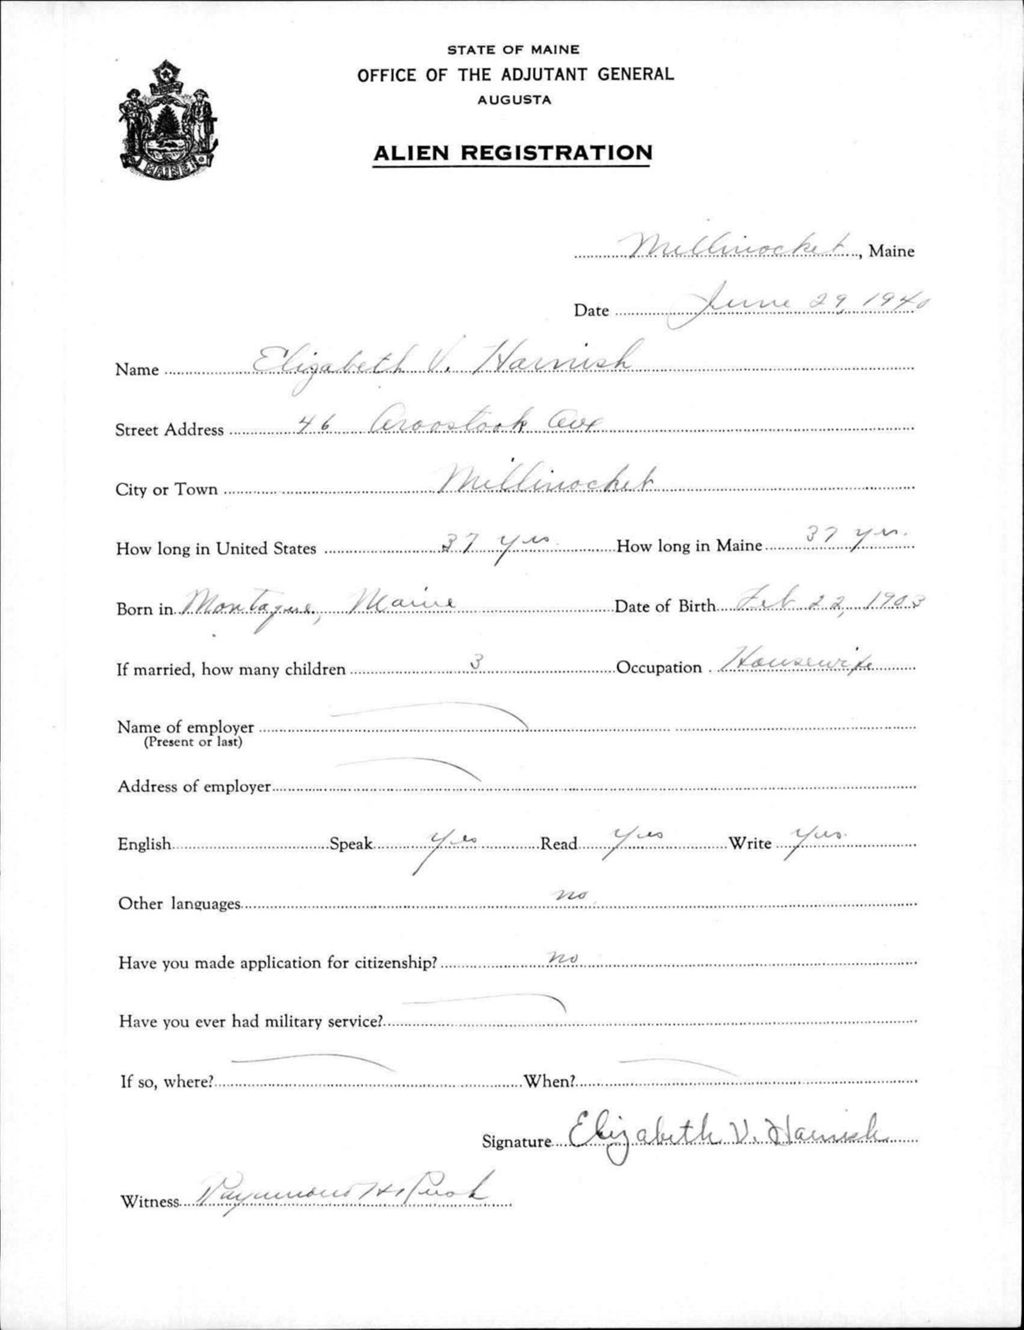 STATE OF MAINE
OFFICE OF THE ADJUTANT GENERAL
AUGUSTA
ALIEN REGISTRATION
MAINE
Millinocket, Maine
Date June 29, 1940
Name Elizabeth V. Harnish
Street Address 46 Aroostook Ave
City or Town Millinocket
How long in United States 37 yrs How long in Maine 37 yrs.
Born in Montague, Maine Date of Birth Feb 22, 1903
If married, how many children 3 Occupation Housewife
Name of employer
(Present or last)
Address of employer
English Speak Yes Read Yes Write Yes
Other languages no
Have you made application for citizenship? no
Have you ever had military service?
If so, where? When?
Signature Elizabeth V. Harnish
Witness Raymond H.